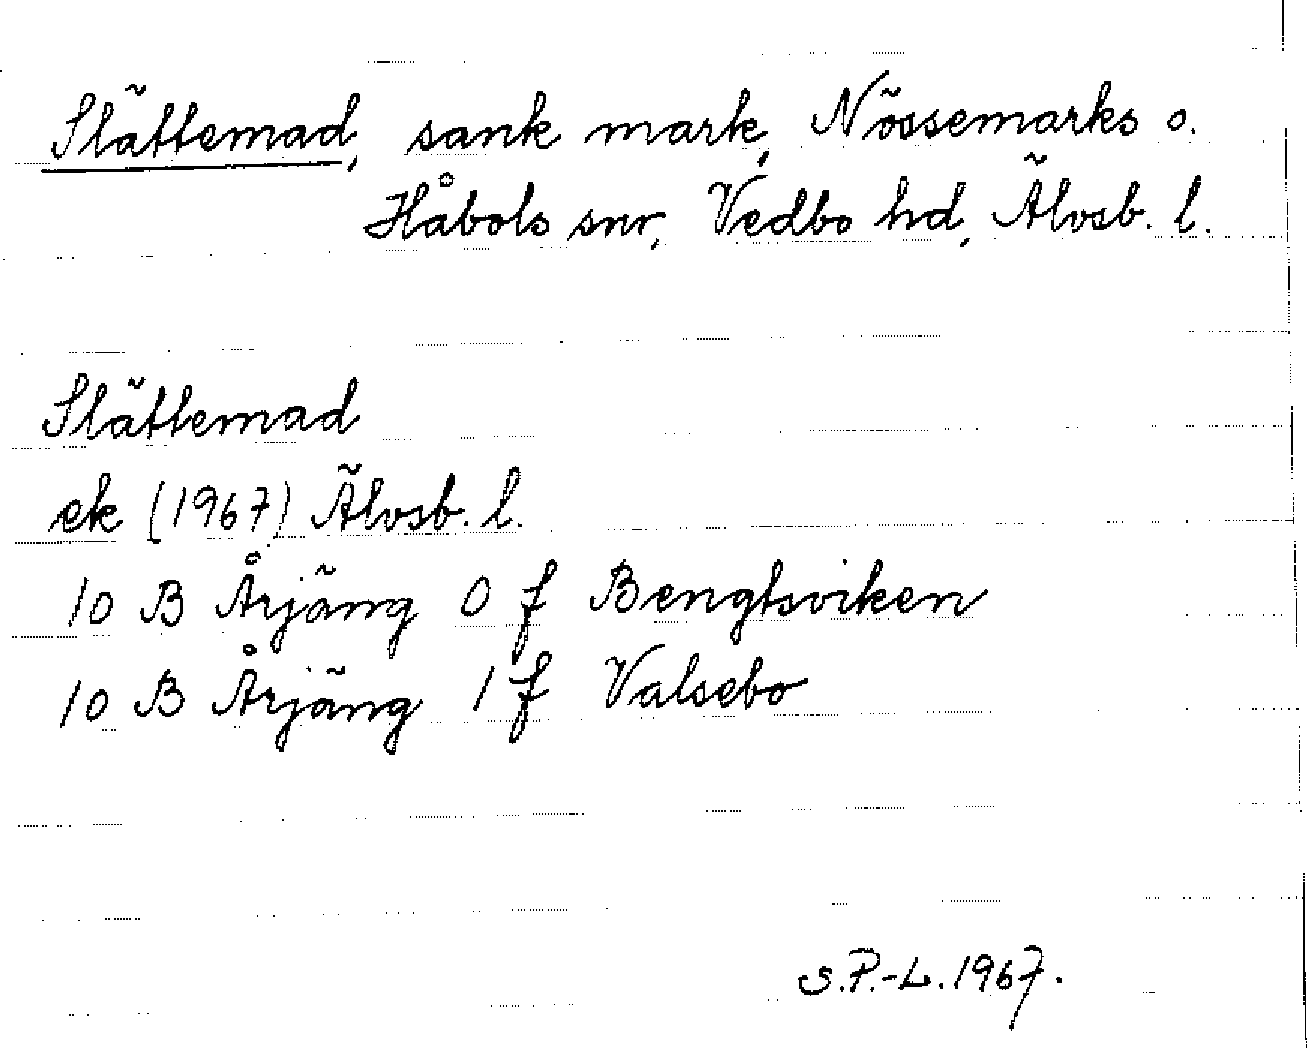 Slättemad, sank mark, Nössemarks o.
Håbols snr, Vedbo hd, Älvsb. l.
Slättemad
ek (1967) Älvsb. l.
10 B Årjäng 0 f Bengtsviken
10 B Årjäng 1 f Valsebo
S.P.-L. 1967.